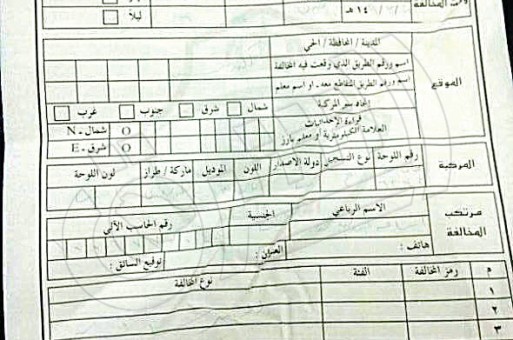 وقت المخالفة
/ / ١٤ هـ
ليلاً
الموقع
المدينة / المحافظة / الحي
اسم ورقم الطريق الذي وقعت فيه المخالفة
اسم ورقم الطريق المتقاطع معه - او اسم معلم
إتجاه سير المركبة شمال شرق جنوب غرب
قراءة الإحداثيات شمال - N O
العلامة الكيلومترية أو معلم بارز شرق - E O
المركبة
رقم اللوحة نوع التسجيل دولة الاصدار اللون الموديل ماركة / طراز لون اللوحة
مرتكب المخالفة
الاسم الرباعي الجنسية رقم الحاسب الآلي
هاتف : العنوان : توقيع السائق :
م رمز المخالفة الفئة نوع المخالفة
١
٢
٣